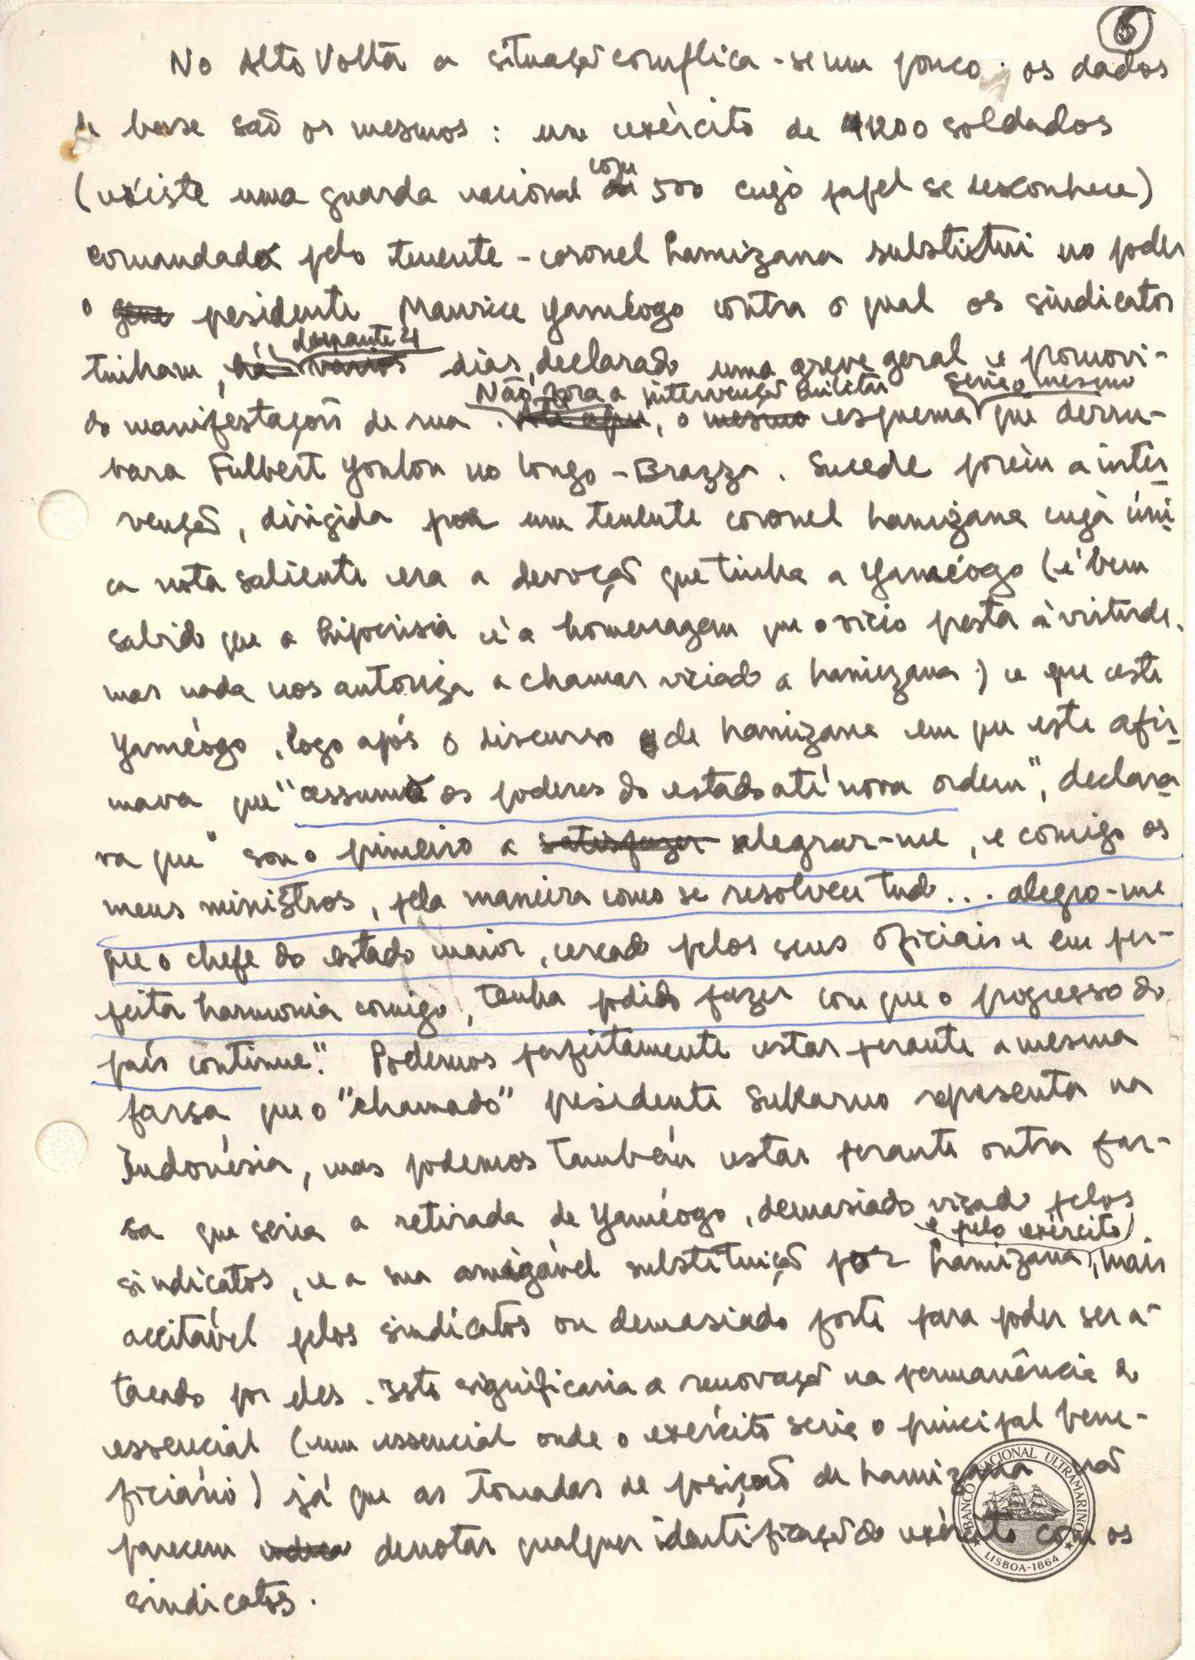 6
No Alto Volta a situação complica-se um pouco: os dados
de base são os mesmos: um exército de 1200 soldados
(existe uma guarda nacional com 500 cujo papel se desconhece)
comandado pelo tenente-coronel Lamizana substitui no poder
o presidente Maurice Yaméogo contra o qual os sindicatos
tinham, durante 4 dias, declarado uma greve geral e promovi-
do manifestações de rua. Não fora a intervenção militar, o esquema seria o mesmo que derru-
bara Fulbert Youlou no Congo-Brazza. Sucede porém a inter-
venção, dirigida por um tenente coronel Lamizana cuja úni-
ca nota saliente era a devoção que tinha a Yaméogo (é bem
sabido que a hipocrisia é a homenagem que o vício presta à virtude.
mas nada nos autoriza a chamar viciado a Lamizana) e que este
Yaméogo, logo após o discurso de Lamizana em que este afir-
mava que "assume os poderes do estado até nova ordem", declara-
va que "sou o primeiro a alegrar-me, e comigo os
meus ministros, pela maneira como se resolveu tudo... alegro-me
que o chefe do estado maior, cercado pelos seus oficiais e em per-
feita harmonia comigo, tenha podido fazer com que o progresso do
país continue". Podemos perfeitamente estar perante a mesma
farsa que o "chamado" presidente Sukarno representa na
Indonésia, mas podemos também estar perante outra far-
sa que seria a retirada de Yaméogo, demasiado visado pelos
sindicatos, e a sua amigável substituição por Lamizana e pelo exército, mais
aceitável pelos sindicatos ou demasiado forte para poder ser a-
tacado por eles. Isto significaria a renovação na permanência do
essencial (um essencial onde o exército seria o principal bene-
ficiário) já que as tomadas de posição de Lamizana não
parecem denotar qualquer identificação do exército com os
sindicatos.
BANCO NACIONAL ULTRAMARINO
LISBOA-1864